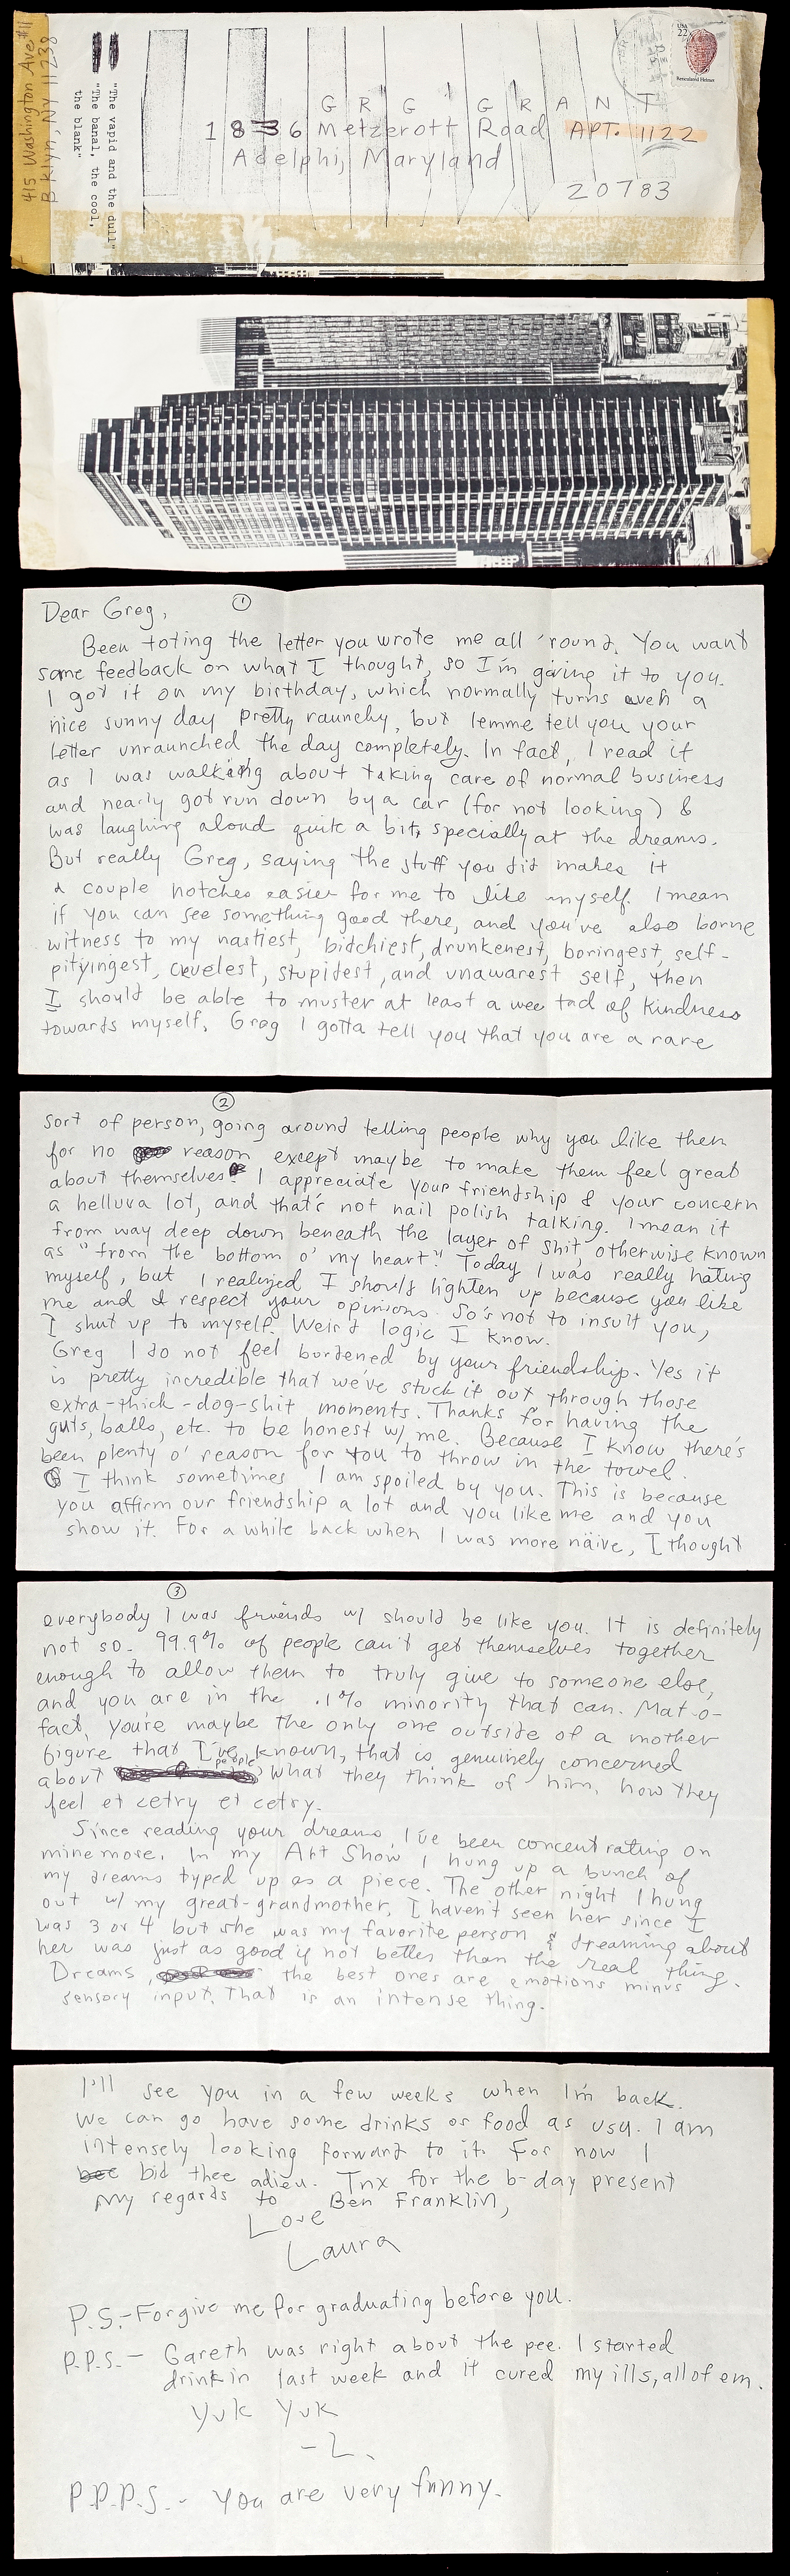 415 Washington Ave #11
Bklyn, NY 11238
"The vapid and the dull"
"The banal, the cool,
the blank"
USA
22
Reticulated Helmet
GRG GRANT
1836 Metzerott Road APT. 1122
Adelphi, Maryland
20783
①
Dear Greg,
Been toting the letter you wrote me all 'round. You want
some feedback on what I thought, so I'm giving it to you.
I got it on my birthday, which normally turns even a
nice sunny day pretty raunchy, but lemme tell you your
letter unraunched the day completely. In fact, I read it
as I was walking about taking care of normal business
and nearly got run down by a car (for not looking) &
was laughing aloud quite a bit, specially at the dreams.
But really Greg, saying the stuff you did makes it
a couple notches easier for me to like myself. I mean
if you can see something good there, and you've also borne
witness to my nastiest, bitchiest, drunkenest, boringest, self-
pityingest, cruelest, stupidest, and unawarest self, then
I should be able to muster at least a wee tad of kindness
towards myself. Greg I gotta tell you that you are a rare
②
sort of person, going around telling people why you like them
for no reason except maybe to make them feel great
about themselves. I appreciate your friendship & your concern
a helluva lot, and that's not nail polish talking. I mean it
from way deep down beneath the layer of shit, otherwise known
as "from the bottom o' my heart." Today I was really hating
myself, but I realized I should lighten up because you like
me and I respect your opinions. So's not to insult you,
I shut up to myself. Weird logic I know.
Greg I do not feel burdened by your friendship. Yes it
is pretty incredible that we've stuck it out through those
extra-thick-dog-shit moments. Thanks for having the
guts, balls, etc. to be honest w/ me. Because I know there's
been plenty o' reason for you to throw in the towel.
I think sometimes I am spoiled by you. This is because
you affirm our friendship a lot and you like me and you
show it. For a while back when I was more näive, I thought
③
everybody I was friends w/ should be like you. It is definitely
not so. 99.9% of people can't get themselves together
enough to allow them to truly give to someone else,
and you are in the .1% minority that can. Mat-o-
fact, you're maybe the only one outside of a mother
figure that I've known, that is genuinely concerned
about people, what they think of him, how they
feel et cetry et cetry.
Since reading your dreams, I've been concentrating on
mine more. In my Art Show I hung up a bunch of
my dreams typed up as a piece. The other night I hung
out w/ my great-grandmother. I haven't seen her since I
was 3 or 4 but she was my favorite person & dreaming about
her was just as good if not better than the real thing.
Dreams, the best ones are emotions minus
sensory input. That is an intense thing.
I'll see you in a few weeks when I'm back.
We can go have some drinks or food as usu. I am
intensely looking forward to it. For now I
bee bid thee adieu. Tnx for the b-day present
My regards to Ben Franklin,
Love
Laura
P.S.-Forgive me for graduating before you.
P.P.S.- Gareth was right about the pee. I started
drinkin last week and it cured my ills, all of em.
Yuk Yuk
-L.
P.P.P.S.- You are very funny.